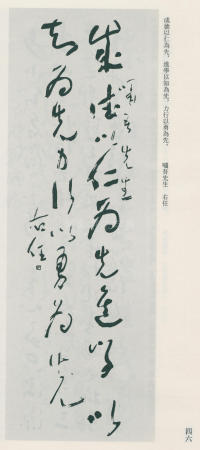 成德以仁為先，進學以知為先，力行以勇為先。 嘯吾先生 右任
四六
成德以仁為先進學以
嘯吾先生
知為先力行以勇為先
右任